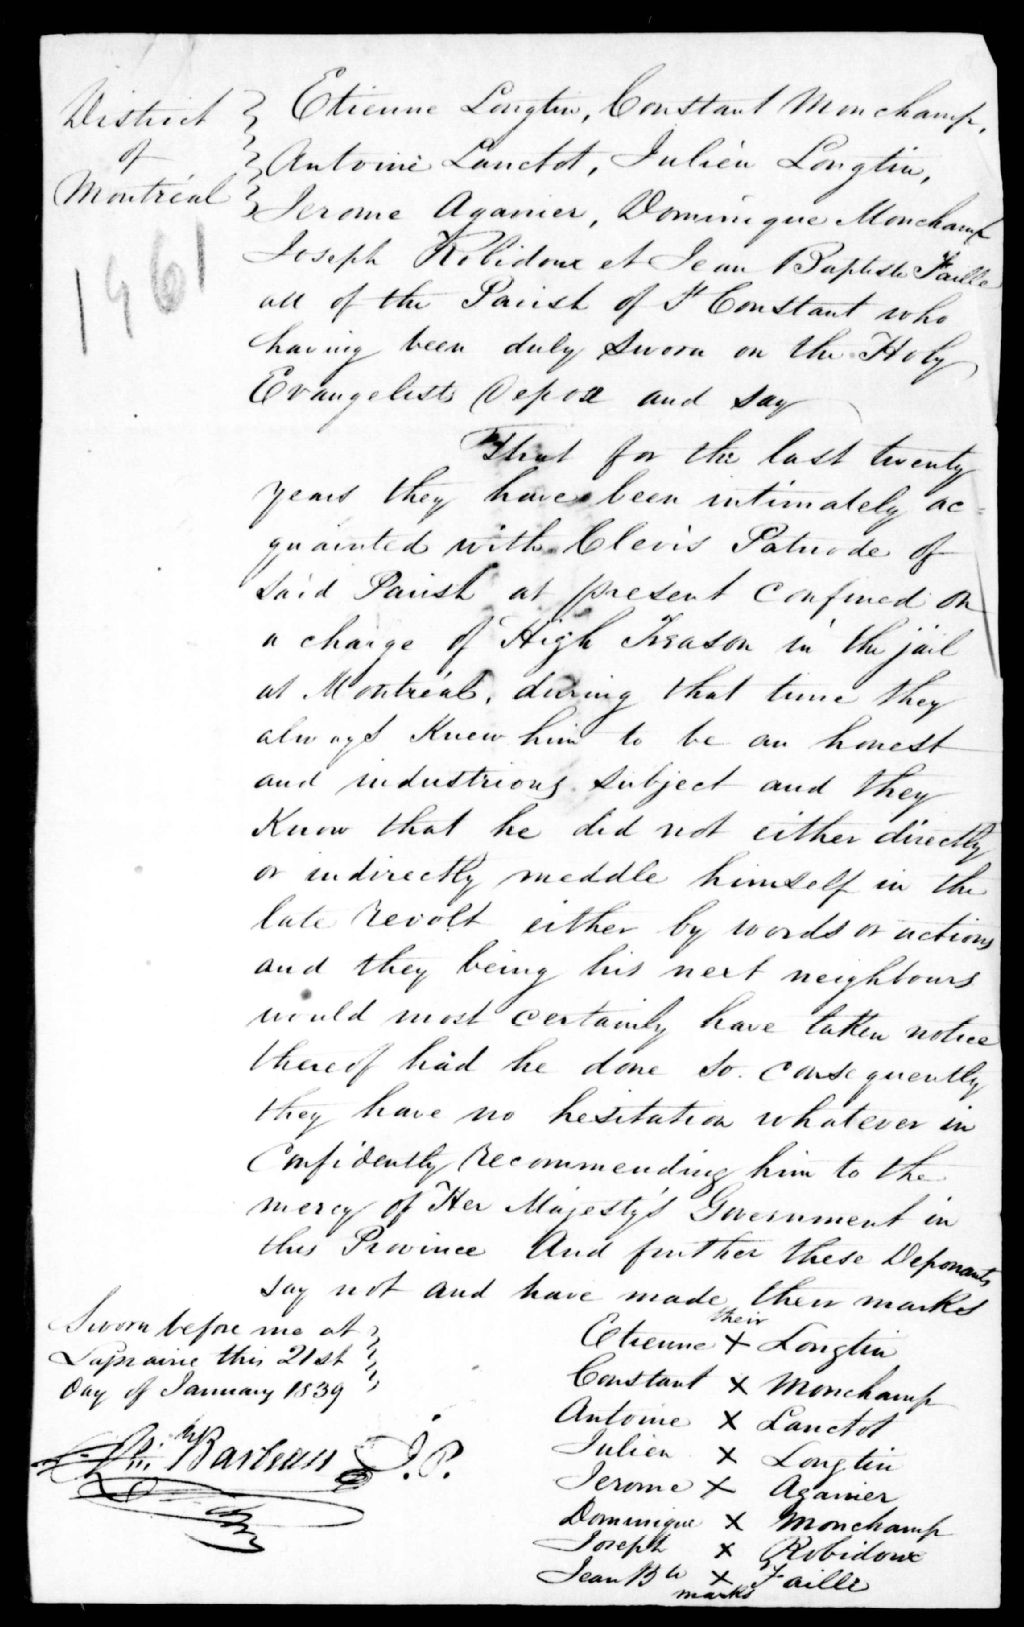 District
of
Montréal
1961
Etienne Longtin, Constant Monchamp,
Antoine Lanctot, Julien Longtin,
Jerome Aganier, Dominique Monchamp
Joseph Robidoux et Jean Baptiste Faille
all of the Parish of St Constant who
having been duly Sworn on the Holy
Evangelists Depose and say
That for the last twenty
years they have been intimately ac=
quainted with Clevis Patnode of
said Parish at present confined on
a charge of High Treason in the jail
at Montréal, during that time they
always Knew him to be an honest
and industrious subject and they
Know that he did not either directly
or indirectly meddle himself in the
late revolt either by words or actions
and they being his next neighbours
would most certainly have taken notice
thereof had he done so. consequently
they have no hesitation whatever in
Confidently recommending him to the
mercy of Her Majesty's Government in
this Province And further these Deponants
say not and have made their marks
Sworn before me at
Laprairie this 21st
Day of January 1839
Barbeau J.P.
their
Etienne X Longtin
Constant X Monchamp
Antoine X Lanctot
Julien X Longtin
Jerome X Aganier
Dominique X Monchamp
Joseph X Robidoux
Jean Bte X Faille
marks